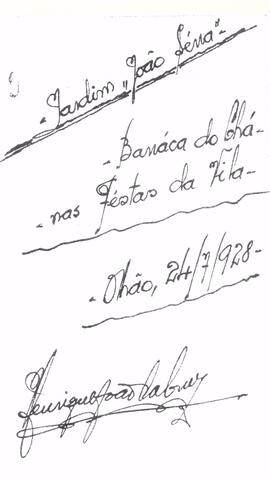 - Jardim "João Serra" -
- Barráca do Chá -
- nas Féstas da Vila -
- Olhão, 24/7/928 -
Henrique João